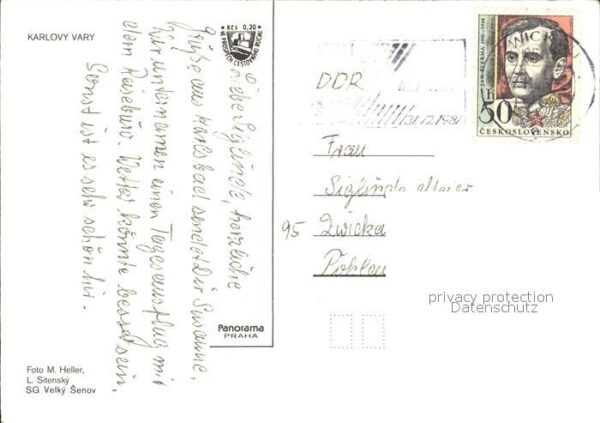 KARLOVY VARY
Kčs 0,20
Liebe Siglinde, herzliche
Grüße aus Karlsbad sendet Dir Susanne.
Wir unternamen einen Tagesausflug mit
dem Reisebüro. Wetter könnte besser sein.
Sonst ist es sehr schön hier.
Foto M. Heller,
L. Sitenský
SG Velký Šenov
Panorama
PRAHA
DDR
50 h
ČESKOSLOVENSKO
Frau
Siglinde Meier
95 Zwicka
Pöhlau
privacy protection
Datenschutz